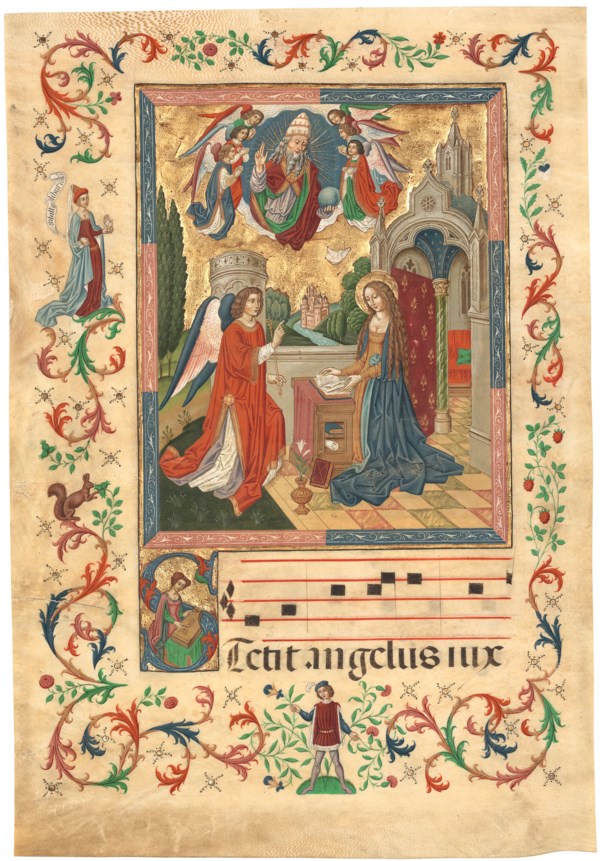 STetit angelus iux